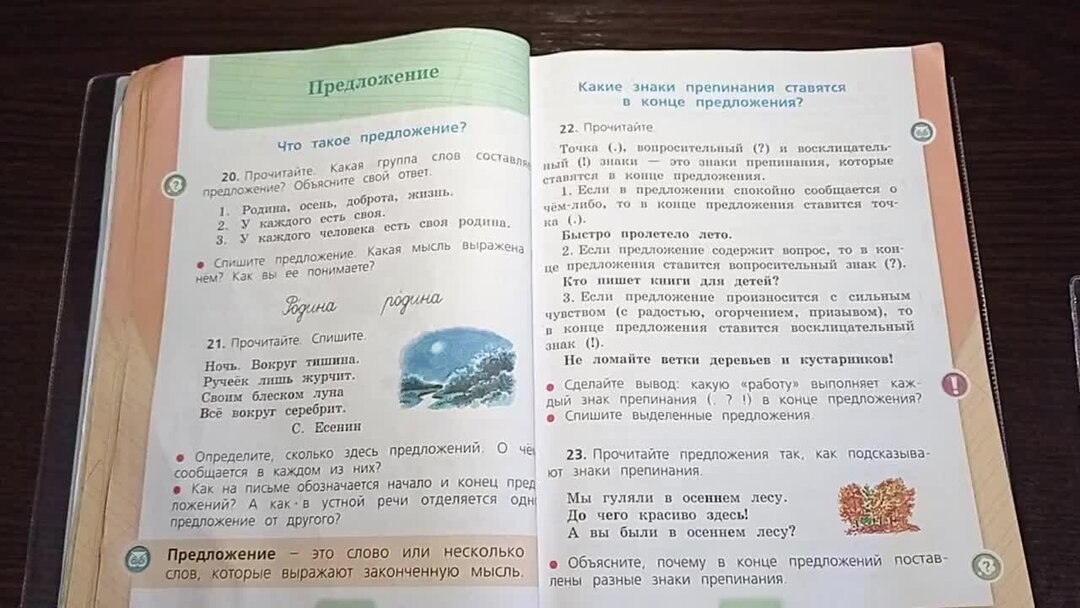 Предложение
Что такое предложение?
20. Прочитайте. Какая группа слов составля
предложение? Объясните свой ответ.
1. Родина, осень, доброта, жизнь.
2. У каждого есть своя.
3. У каждого человека есть своя родина.
• Спишите предложение. Какая мысль выражена
нём? Как вы ее понимаете?
Родина родина
21. Прочитайте. Спишите.
Ночь. Вокруг тишина.
Ручеёк лишь журчит.
Своим блеском луна
Всё вокруг серебрит.
С. Есенин
• Определите, сколько здесь предложений. О чё
сообщается в каждом из них?
• Как на письме обозначается начало и конец пред
ложений? А как в устной речи отделяется одн
предложение от другого?
Предложение – это слово или несколько
слов, которые выражают законченную мысль.
Какие знаки препинания ставятся
в конце предложения?
22. Прочитайте.
Точка (.), вопросительный (?) и восклицатель-
ный (!) знаки — это знаки препинания, которые
ставятся в конце предложения.
1. Если в предложении спокойно сообщается о
чём-либо, то в конце предложения ставится точ-
ка (.).
Быстро пролетело лето.
2. Если предложение содержит вопрос, то в кон-
це предложения ставится вопросительный знак (?).
Кто пишет книги для детей?
3. Если предложение произносится с сильным
чувством (с радостью, огорчением, призывом), то
в конце предложения ставится восклицательный
знак (!).
Не ломайте ветки деревьев и кустарников!
• Сделайте вывод: какую «работу» выполняет каж-
дый знак препинания (. ? !) в конце предложения?
• Спишите выделенные предложения.
23. Прочитайте предложения так, как подсказыва-
ют знаки препинания.
Мы гуляли в осеннем лесу.
До чего красиво здесь!
А вы были в осеннем лесу?
• Объясните, почему в конце предложений постав-
лены разные знаки препинания.